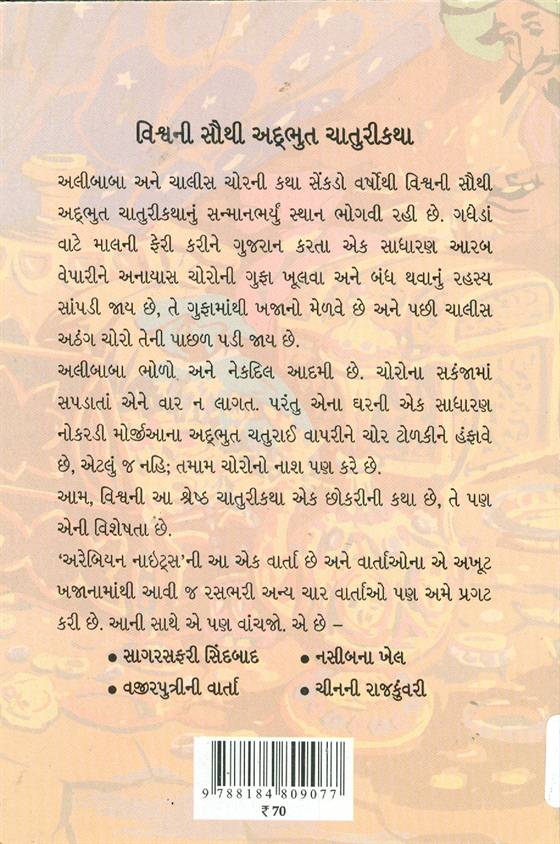 વિશ્વની સૌથી અદ્ભુત ચાતુરીકથા
અલીબાબા અને ચાલીસ ચોરની કથા સેંકડો વર્ષોથી વિશ્વની સૌથી
અદ્ભુત ચાતુરીકથાનું સન્માનભર્યું સ્થાન ભોગવી રહી છે. ગધેડાં
વાટે માલની ફેરી કરીને ગુજરાન કરતા એક સાધારણ આરબ
વેપારીને અનાયાસ ચોરોની ગુફા ખૂલવા અને બંધ થવાનું રહસ્ય
સાંપડી જાય છે, તે ગુફામાંથી ખજાનો મેળવે છે અને પછી ચાલીસ
અઠંગ ચોરો તેની પાછળ પડી જાય છે.
અલીબાબા ભોળો અને નેકદિલ આદમી છે. ચોરોના સકંજામાં
સપડાતાં એને વાર ન લાગત. પરંતુ એના ઘરની એક સાધારણ
નોકરડી મોર્જીઆના અદ્ભુત ચતુરાઈ વાપરીને ચોર ટોળકીને હંફાવે
છે, એટલું જ નહિ; તમામ ચોરોનો નાશ પણ કરે છે.
આમ, વિશ્વની આ શ્રેષ્ઠ ચાતુરીકથા એક છોકરીની કથા છે, તે પણ
એની વિશેષતા છે.
‘અરેબિયન નાઇટ્સ’ની આ એક વાર્તા છે અને વાર્તાઓના એ અખૂટ
ખજાનામાંથી આવી જ રસભરી અન્ય ચાર વાર્તાઓ પણ અમે પ્રગટ
કરી છે. આની સાથે એ પણ વાંચજો. એ છે –
• સાગરસફરી સિંદબાદ • નસીબના ખેલ
• વજીરપુત્રીની વાર્તા • ચીનની રાજકુંવરી
9 788184 809077
₹ 70